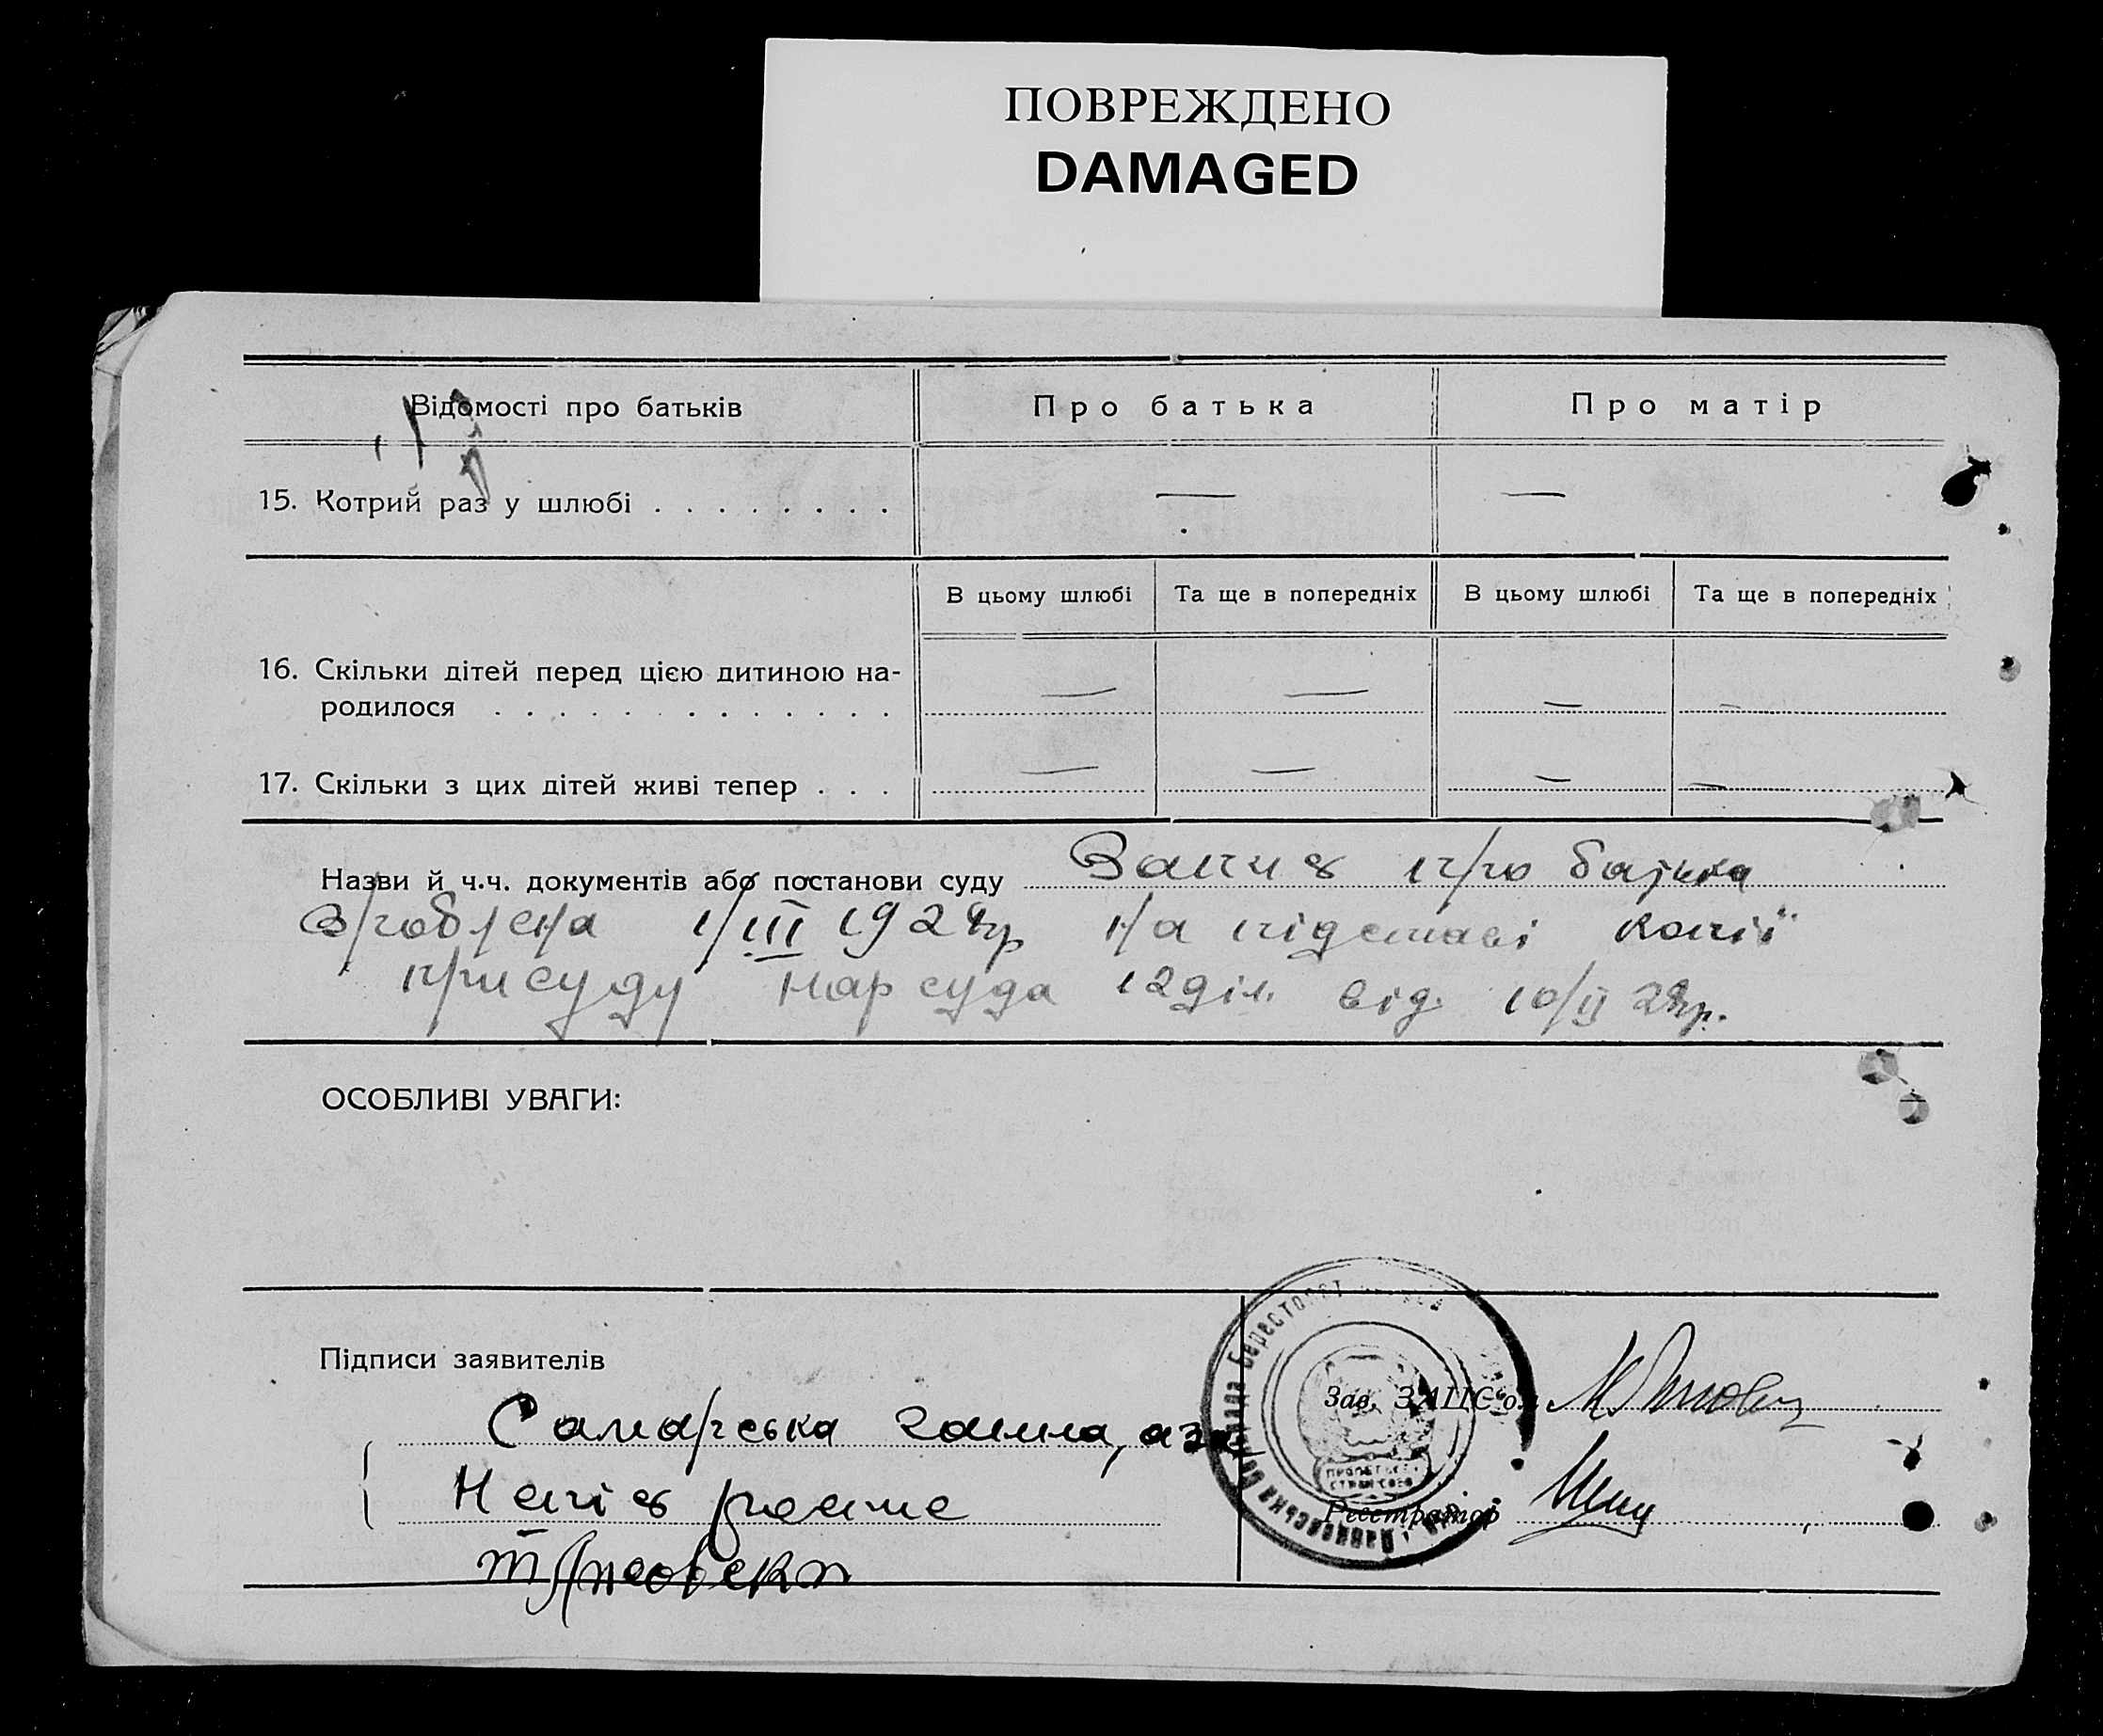 ПОВРЕЖДЕНО
DAMAGED
Відомості про батьків Про батька Про матір
15. Котрий раз у шлюбі . . . . . . . . — —
В цьому шлюбі Та ще в попередніх В цьому шлюбі Та ще в попередніх
16. Скільки дітей перед цією дитиною на-
родилося . . . . . . . . . . . . . — — — —
17. Скільки з цих дітей живі тепер . . . — — — —
Назви й ч.ч. документів або постанови суду Запис про батька
зроблена 1/III 1928р на підставі копії
присуду Нарсуда 12 діл. від. 10/II 28р.
ОСОБЛИВІ УВАГИ:
Підписи заявителів
Зав. ЗАЦС'ом
Самарська Ганна, а за
Реєстратор